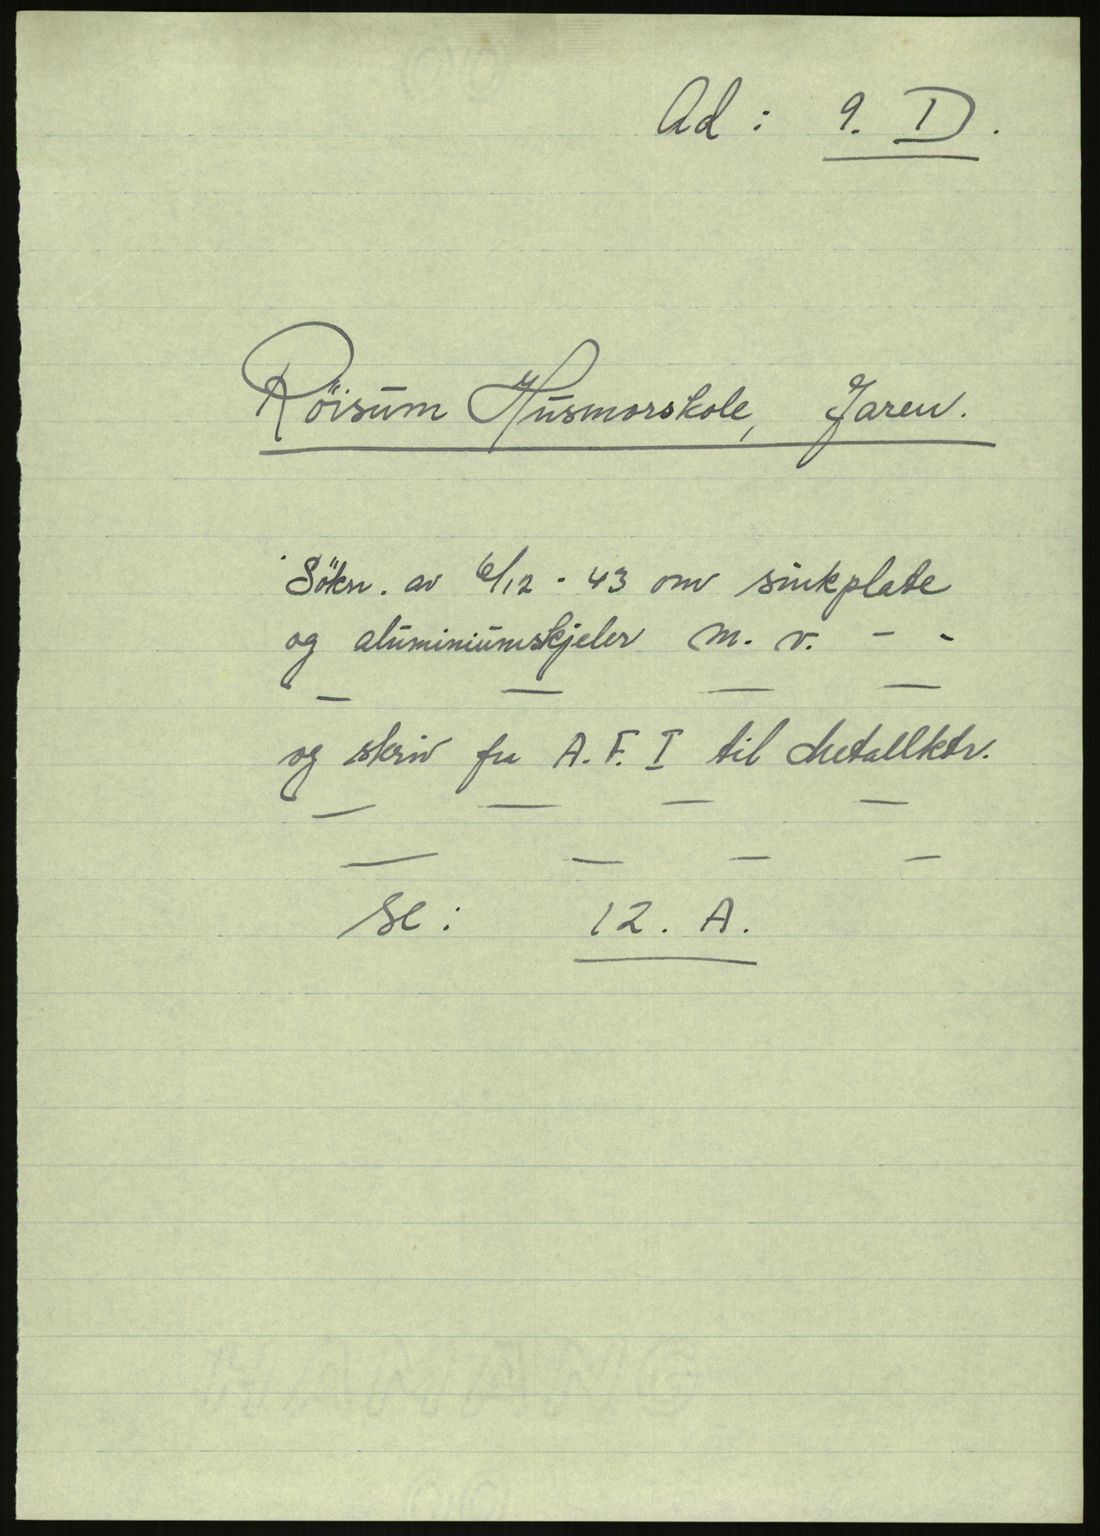 Ad : 9. D.
Röisum Husmorskole, Jaren.
Søkn. av 6/12 - 43 om sinkplate
og aluminiumskjeler m. v. - -
— — — —
og skriv fra A. F. I til Metallktr.
— — — —
— — — —
Se : 12. A.
HAMANG